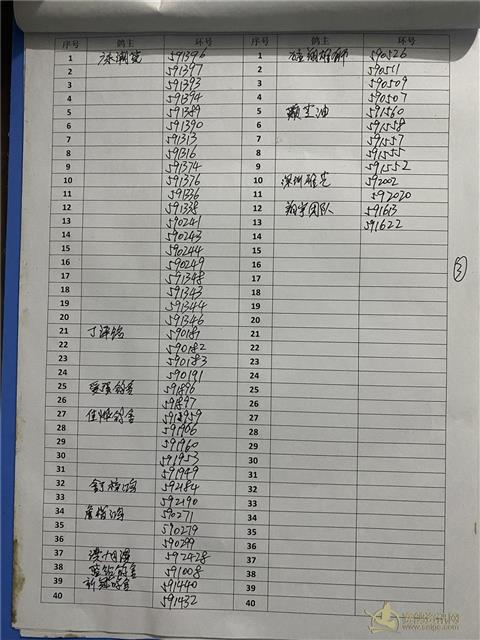 序号 鸽主 环号 序号 鸽主 环号
1 591396 1 590526
2 591397 2 590511
3 591393 3 590509
4 591394 4 590507
5 591389 5 赖尘油 591560
6 591390 6 591558
7 591313 7 591557
8 591316 8 591555
9 591374 9 591552
10 591376 10 深圳雄先 592002
11 591336 11 592020
12 591338 12 翔宇团队 591613
13 590241 13 591622
14 590243 14
15 590244 15
16 590249 16
17 591348 17
18 591343 18
19 591344 19
20 591346 20
21 590187 21
22 590182 22
23 590183 23
24 590191 24
25 鸽舍 591896 25
26 591897 26
27 鸽舍 591959 27
28 591906 28
29 591960 29
30 591953 30
31 591949 31
32 592184 32
33 592190 33
34 590271 34
35 590279 35
36 590299 36
37 592428 37
38 鸽舍 591008 38
39 鸽舍 591440 39
40 591432 40
3